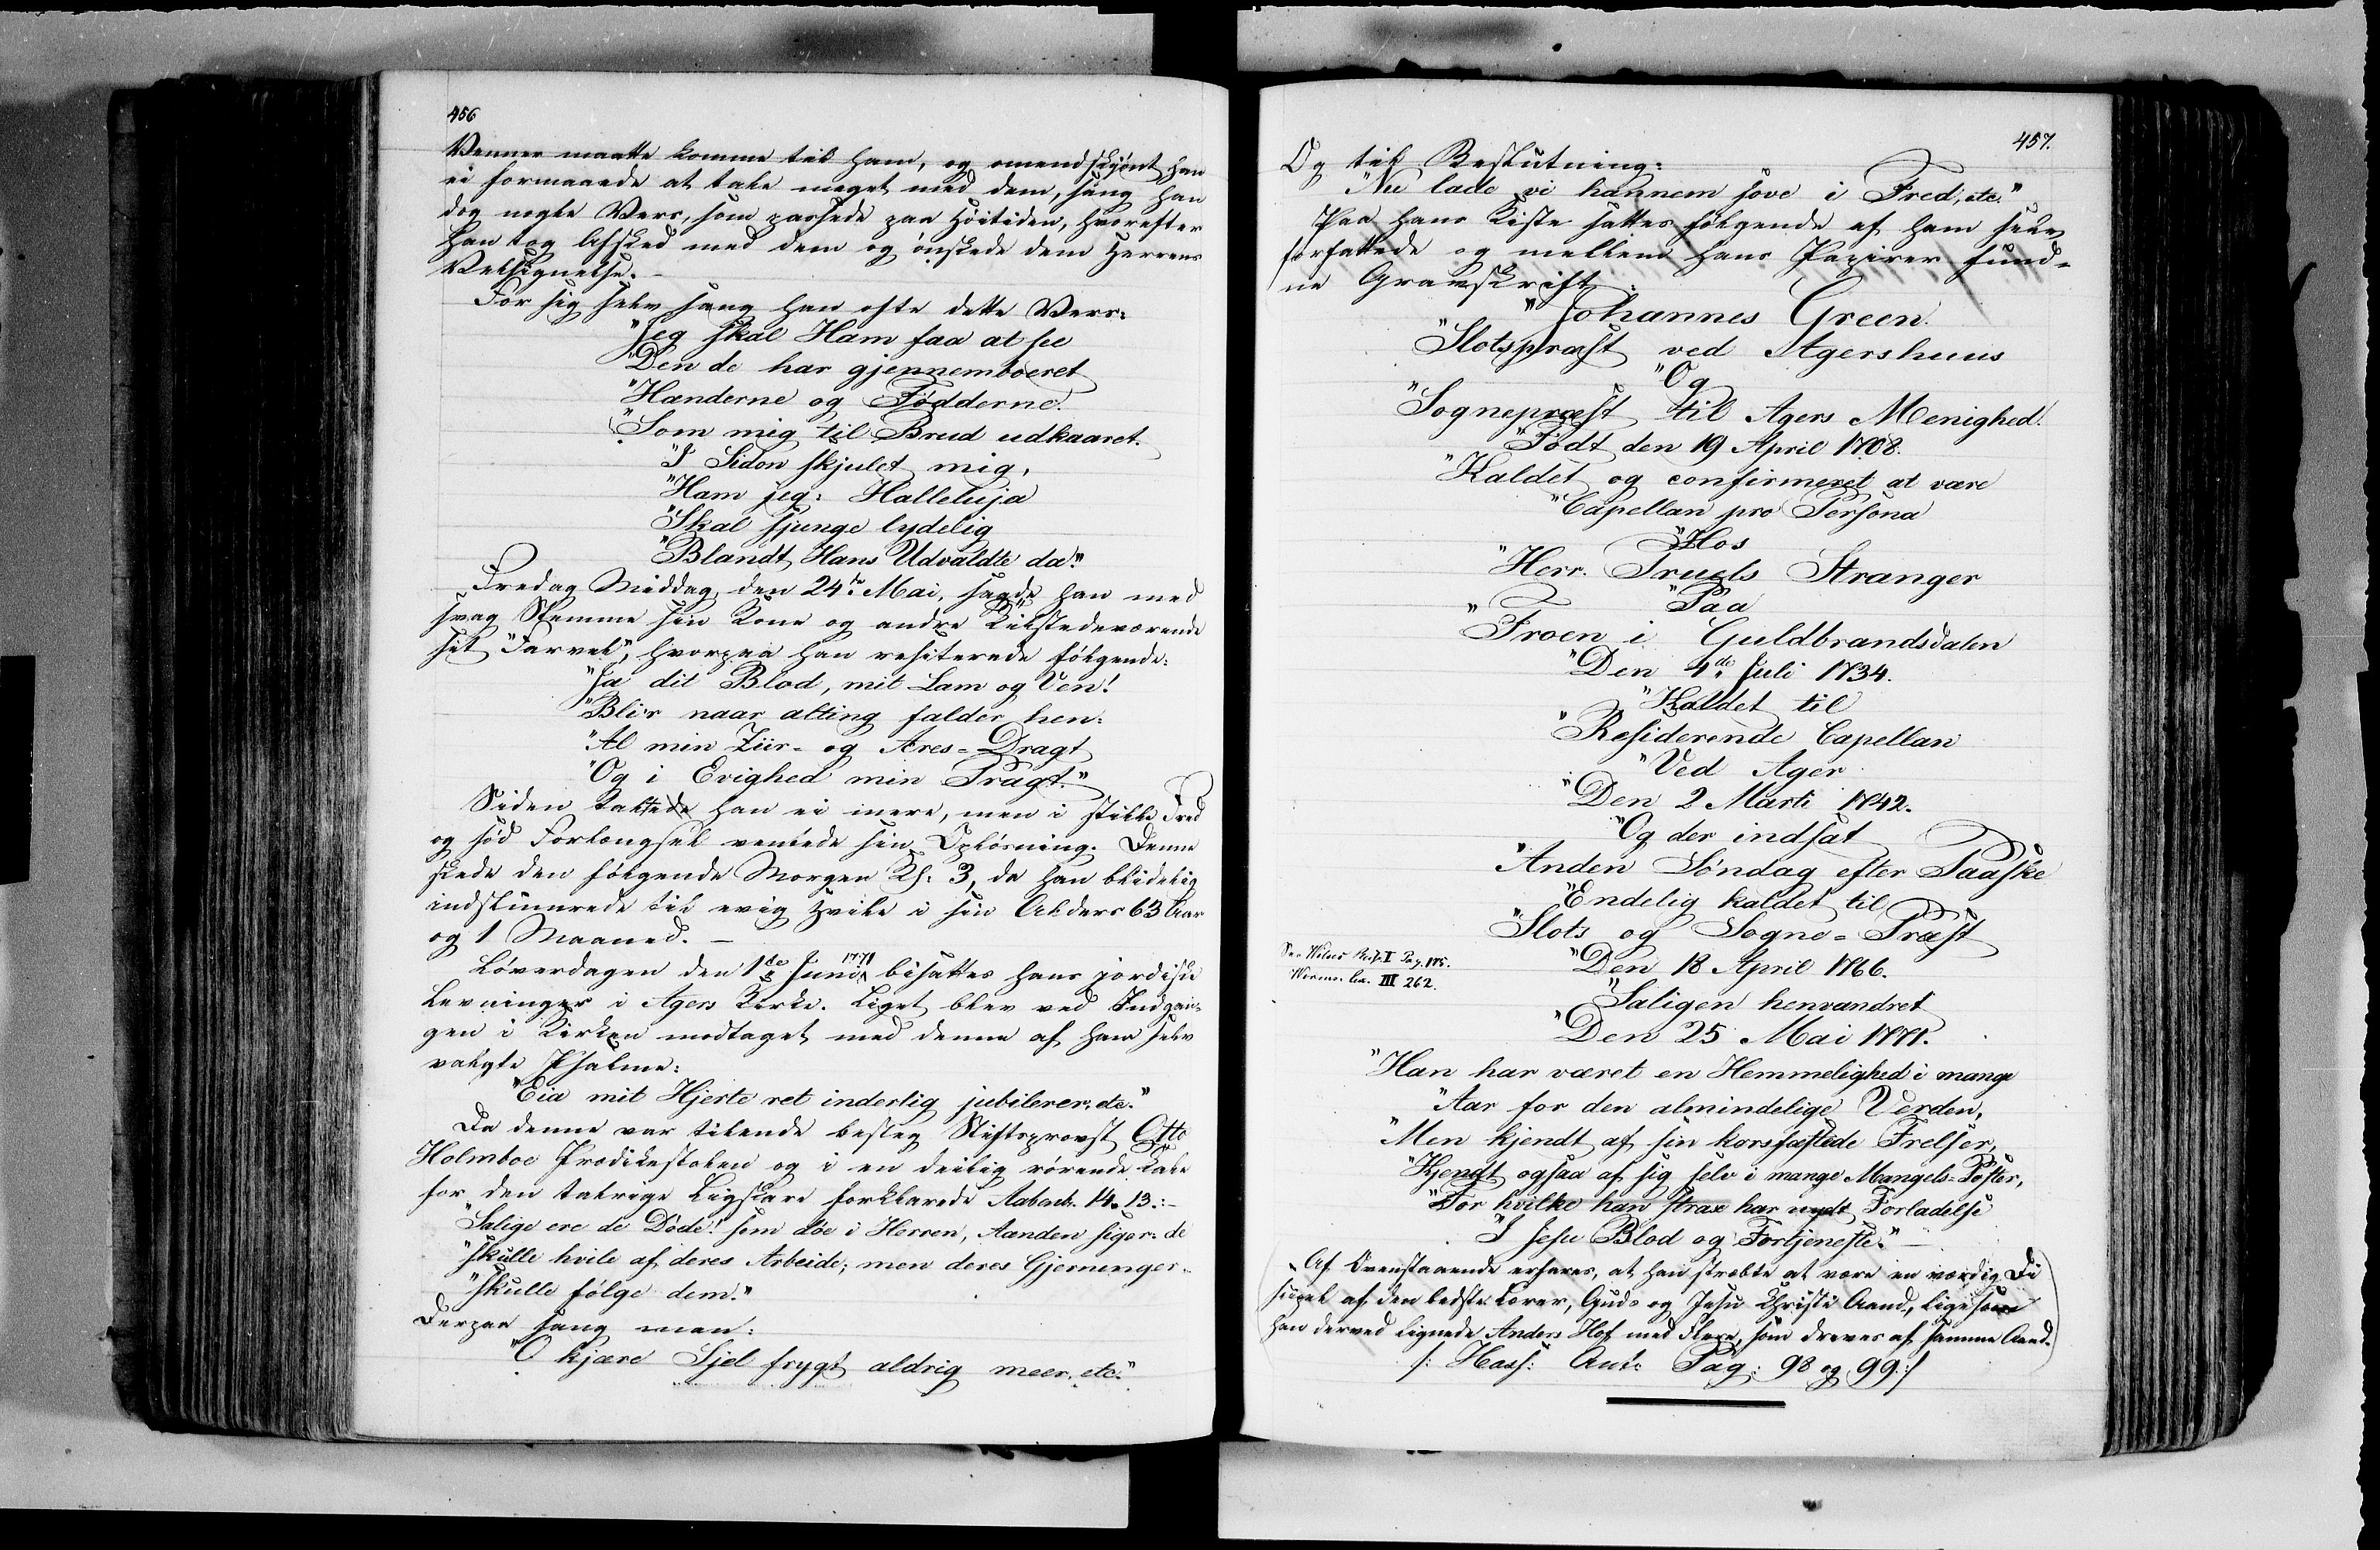 456
Venner maatte komme til ham, og omendskjønt han
ei formaaede at tale meget med dem, sang han
dog nogle Vers, som passede paa Høitiden, hvorefter
han tog Afsked med dem og ønskede dem Herrens
Velsignelse. –
For sig selv sang han ofte dette Vers:
"Jeg skal Ham faa at see
"Den de har gjennemboeret
"Hænderne og Fødderne.
"Som mig til Brud udkaaret.
"I Siden skjulet mig,
"Ham jeg: Halleluja
"Skal sjunge lydelig
"Blandt Hans Udvaldte da."
Fredag Middag, den 24de Mai, sagde han med
svag Stemme sin Kone og andre Tilstedeværende
sit "Farvel", hvorpaa han resiterede følgende:
"Ja dit Blod, mit Lam og Ven!
"Bli'r naar alting falder hen:
"Al min Ziir- og Æres-Dragt
"Og i Evighed min Pragt."
Siden talte han ei mere, men i stille Fred
og sød Forlængsel ventede sin Opløsning. Denne
skede den følgende Morgen Kl: 3, da han blidelig
indslumrede til evig Hvile i sin Alders 63 Aar
og 1 Maaned. –
Løverdagen den 1de Juni 1771 bisattes hans jordiske
Levninger i Agers Kirke. Liget blev ved Indgan-
gen i Kirken modtaget med denne af ham selv
valgte Psalme:
"Eia mit Hjerte ret inderlig jubilerer, etc."
Da denne var tilende besteg Stiftsprovst Otto
Holmboe Prædikestolen og i en deilig rørende Tale
for den talrige Ligskare forklarede Aabenb. 14. 13.: –
"Salige ere de Døde! som døe i Herren, Aanden siger: de
"skulle hvile af deres Arbeide; men deres Gjerninger
"skulle følge dem."
Derpaa sang man:
"O kjære Sjel frygt aldrig meer, etc."
457.
Og til Beslutning:
"Nu lade vi hannem sove i Fred, etc."
Paa hans Kiste sattes følgende af ham selv
forfattede og mellem hans Papirer fund-
ne Gravskrift:
"Johannes Green.
"Slotspræst ved Agershuus
"Og
"Sognepræst til Agers Menighed.
"Født den 19 April 1708.
"Kaldet og confirmeret at være
"Capellan pro Persona
"Hos
"Herr. Truels Stranger
"Paa
"Froen i Guldbrandsdalen
"Den 4de Juli 1734.
"Kaldet til
"Residerende Capellan
"Ved Ager
"Den 2 Marti 1742.
"Og der indsat
"Anden Søndag efter Paaske
"Endelig kaldet til
"Slots og Sogne-Præst
"Den 18 April 1766.
Pag. 175.
III 262.
"Saligen henvandret
"Den 25 Mai 1771.
"Han har været en Hemmelighed i mange
"Aar for den almindelige Verden,
"Men kjendt af sin korsfæstede Frelser,
"Kjendt ogsaa af sig selv i mange Mangels-Poster,
"For hvilke han strax har nydt Forladelse
"I Jesu Blod og Fortjeneste." –
(Af Ovenstaaende erfares, at han stræbte at være en værdig Di
sipel af den bedste Lærer, Guds og Jesu Christi Aand, ligesom
han derved lignede Anders Hof med Flere, som dreves af samme Aand.)
/: Hass: Ant: Pag: 98 og 99:/